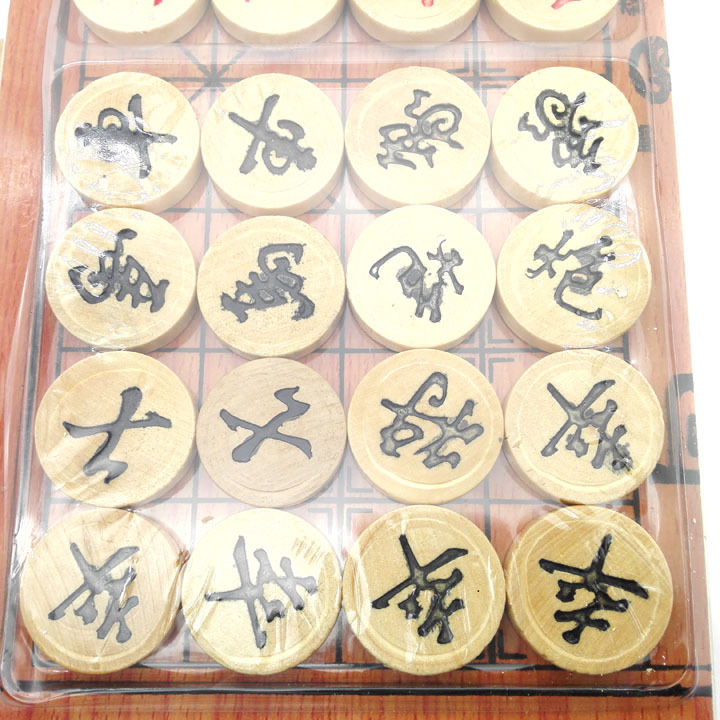 車 車 象 象
馬 馬 炮 炮
士 士 將 卒
卒 卒 卒 卒